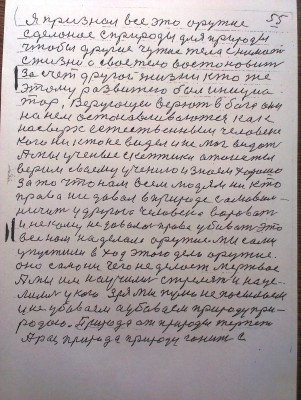 55
Я признал все это оружие
сделоное с природы для природы
чтобы другие чужие тела снимать
с жизни а своего востоновить
за счет другой жизни кто же
этому развитего был инициа
тор. Верующии верют в бога они
на нем остонавливаются как
на сверх естественным человеке
кого ни кто не видел и не мог видать
А мы ученые скептики атеисты
верим своему учению и знаем хорошо
за то что нам всем людям ни кто
права не довал в природе самоволь
ничит у другого человека воровать
и некому не довал права убивать это
все нам наделало оружие. мы сами
упустили в ход этого дела оружие.
оно само ни чего не делает мертвое
А мы им научились стрелять и наце
лили у кого зря мы пулю не посылаем
и не убиваем а убиваем природу при-
родою. Природа от природы терпит
А раз природа природу гонит с